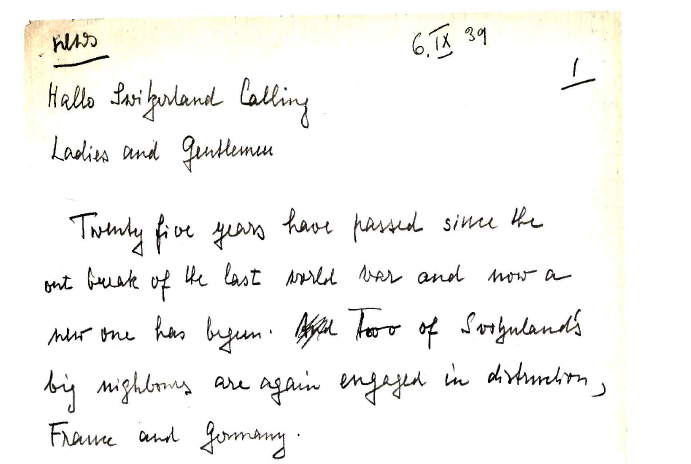 news
6.IX 39
1
Hallo Switzerland Calling
Ladies and Gentlemen
Twenty five years have passed since the
out break of the last world war and now a
new one has begun. And Two of Switzerland's
big nighbours are again engaged in distruction,
France and Germany.